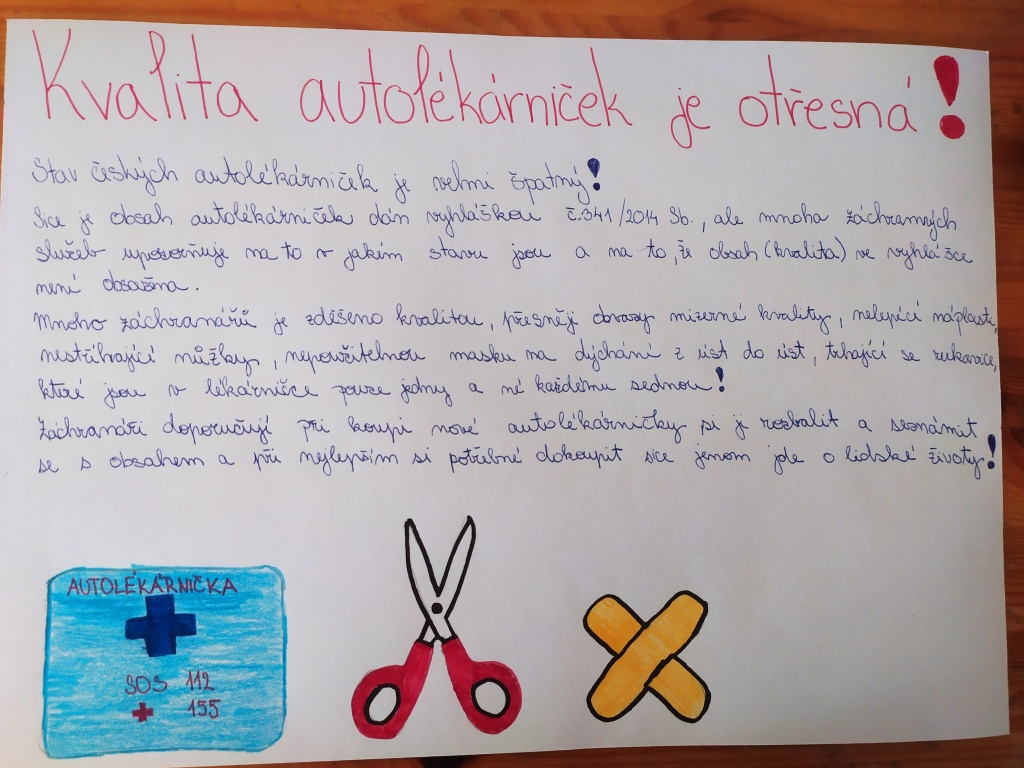 Kvalita autolékárniček je otřesná!
Stav českých autolékárniček je velmi špatný!
Sice je obsah autolékárniček dán vyhláškou č.341/2014 Sb., ale mnoha záchranných
služeb upozorňuje na to v jakém stavu jsou a na to, že obsah (kvalita) ve vyhlášce
není obsažena.
Mnoho záchranářů je zděšeno kvalitou, přesněji obvazy mizerné kvality, nelepící náplasti,
nestříhající nůžky, nepoužitelnou masku na dýchání z úst do úst, trhající se rukavice,
které jsou v lékárničce pouze jedny a né každému sednou!
Záchranáři doporučují při koupi nové autolékárničky si ji rozbalit a seznámit
se s obsahem a při nejlepším si potřebné dokoupit sice jenom jde o lidské životy!
AUTOLÉKÁRNIČKA
SOS 112
155